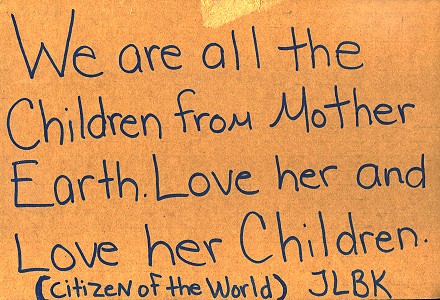 We are all the
Children from Mother
Earth. Love her and
Love her Children.
(Citizen of the World) JLBK